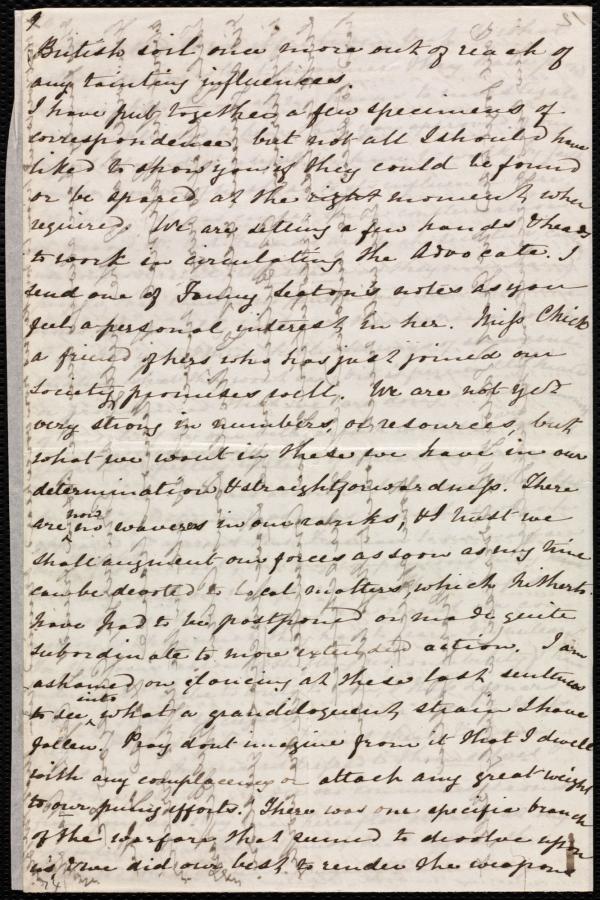 9
British soil once more out of reach of
any tainting influences.
I have put together a few specimens of
correspondence, but not all I should have
liked to show you if they could be found
or be spared at the right moment, when
required. We are setting a few hands & heads
to work in circulating the Advocate. I
send one of Fanny Seaton's notes as you
feel a personal interest in her. Miss Chick
a friend of hers who has just joined our
Society promises well. We are not yet
very strong in numbers, or resources, but
what we want in these we have in our
determination & straightforwardness. There
are now no waverers in our ranks, & I trust we
shall augment our forces as soon as my time
can be devoted to local matters which hitherto
have had to be postponed or made quite
subordinate to more extended action. I am
ashamed on glancing at these last sentences
to see into what a grandiloquent strain I have
fallen. Pray dont imagine from it that I dwell
with any complacency or attach any great weight
to our puny efforts. There was one specific branch
of the warfare that seemed to devolve upon
us & we did our best to render the weapons